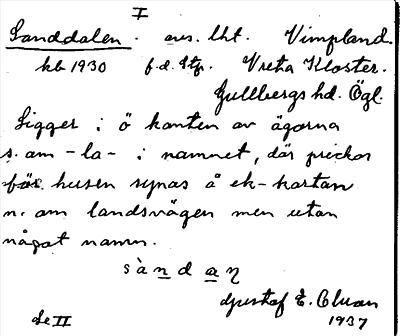 I
Sanddalen. avs. lht. Vimpland.
kb 1930 f.d. Stp. Vreta Kloster.
Gullbergs hd. Ögl.
Ligger i ö kanten av ägorna
s. om -la- i namnet, där prickar
för husen synas å ek-kartan
n. om landsvägen men utan
något namn.
sàndaṇ
Gustaf E. Cluan
1937
Se II